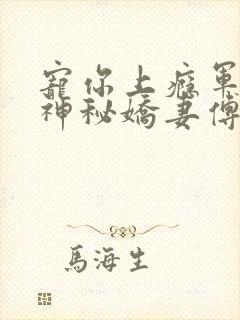 寵你上癮軍
神秘嬌妻傅
馬海生